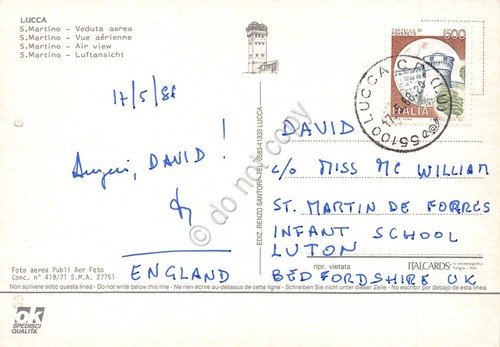 LUCCA
S.Martino - Veduta aerea
S.Martino - Vue aérienne
S.Martino - Air view
S.Martino - Luftansicht
17/5/86
Auguri, DAVID!
ENGLAND
Foto aerea Publi Aer Foto
Conc. n° 419/71 S.M.A. 27751
EDIZ. RENZO SANTORI - TEL. 0583-41333 LUCCA
CASTELLO DI
ROVERETO
500
ITALIA
55100 LUCCA C.P.
DAVID
c/o MISS MC WILLIAM
ST. MARTIN DE FORRES
INFANT SCHOOL
LUTON
BEDFORDSHIRE UK
ripr. vietata
ITALCARDS
Non scrivere sotto questa linea - Do not write below this line - Ne rien écrire au-dessous de cette ligne - Schreiben Sie nicht unter dieser Zeile - No escribir por debajo de esta linea
ok
SPEDISCI
QUALITÀ
© do not copy